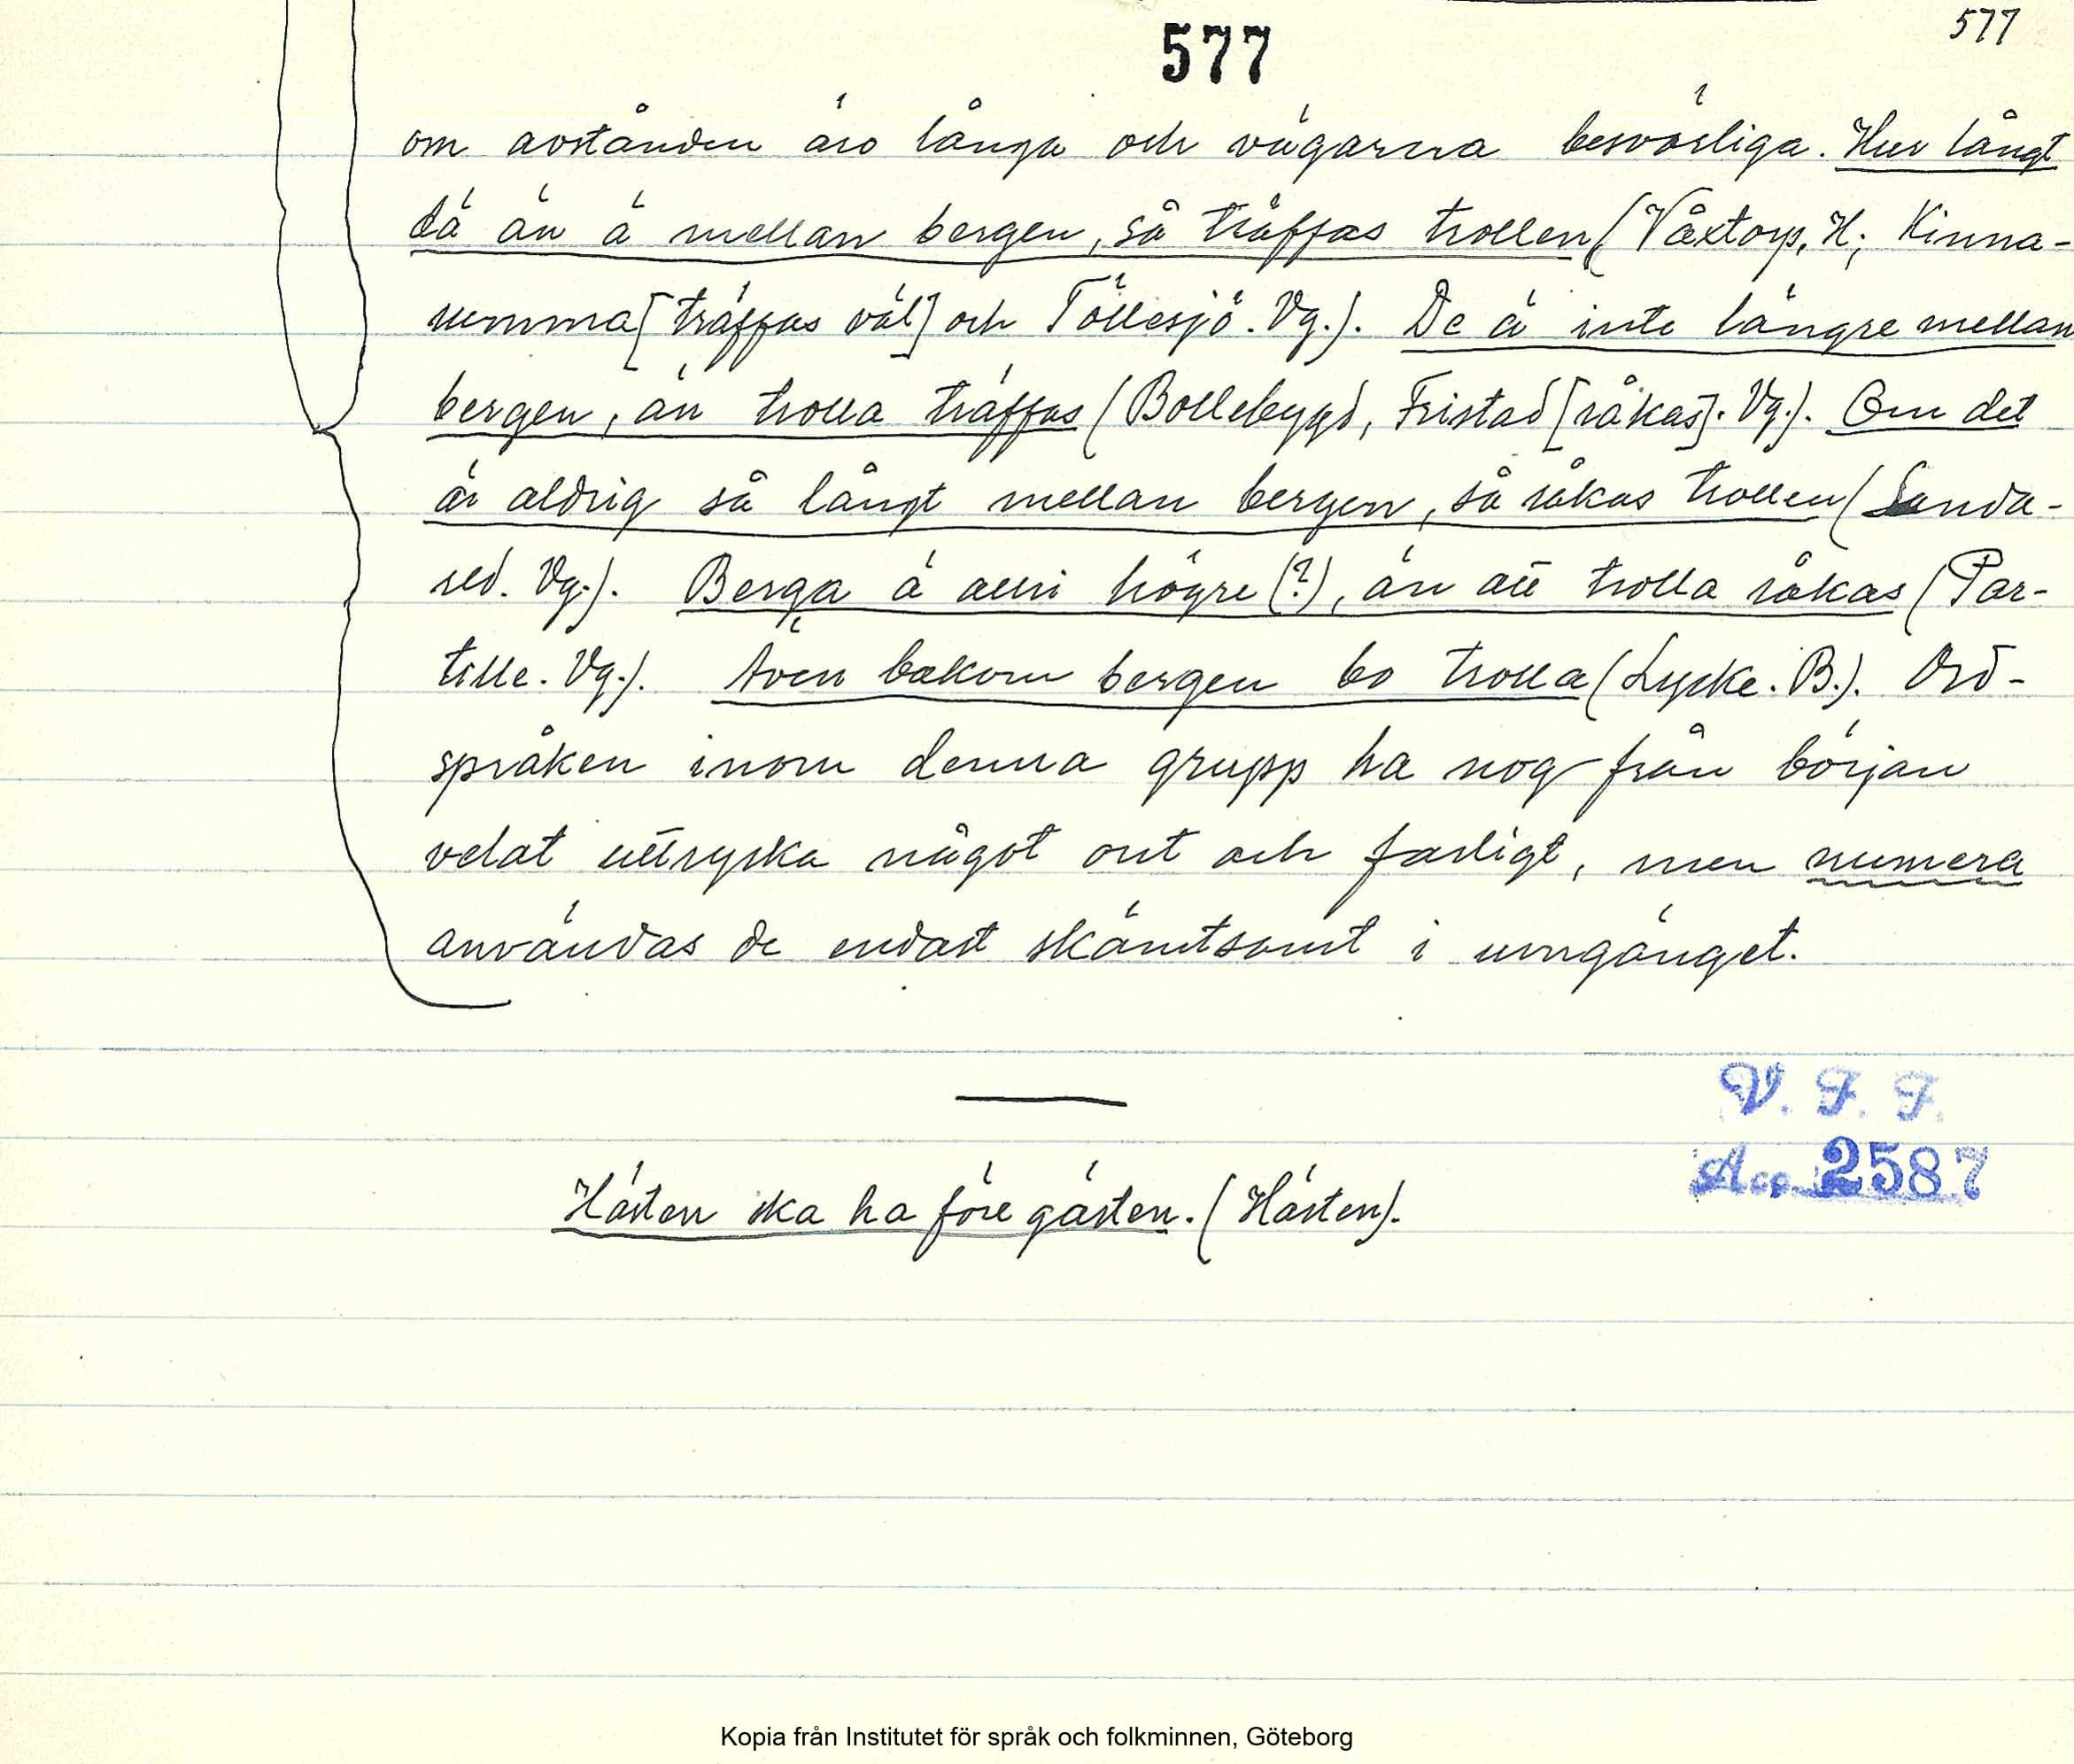 577
577
om avstånden äro långa och vägarna besvärliga. Hur långt
dä än ä mellan bergen, så träffas trollen (Våxtorp, H; Kinna-
rumma [träffas väl] och Töllesjö. Vg.). De ä inte längre mellan
bergen, än trolla träffas (Bollebygd, Fristad [råkas]. Vg.). Om det
är aldrig så långt mellan bergen, så råkas trollen (Sanda-
red. Vg.). Berga ä allri högre (?), än att trolla råkas (Par-
tille. Vg.). Även bakom bergen bo trolla (Lycke. B.). Ord-
språken inom denna grupp ha nog från början
velat uttrycka något ont och farligt, men numera
användas de endast skämtsamt i umgänget.
V. F. F.
Acc. 2587
Hästen ska ha före gästen. (Hästen).
Kopia från Institutet för språk och folkminnen, Göteborg